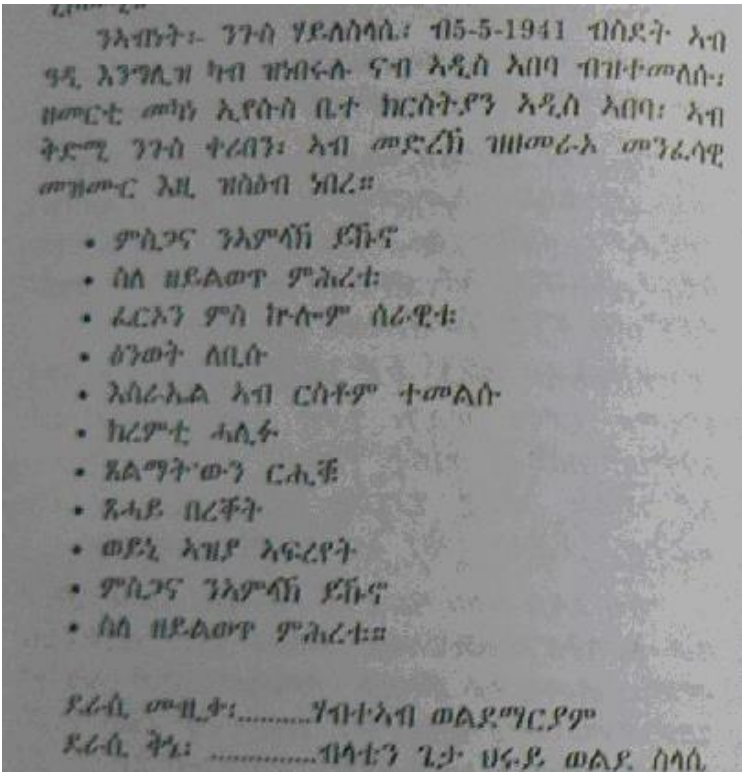 ንኣብነት፡- ንጉስ ሃይለስላሴ፡ ብ5-5-1941 ብስደት ኣብ
ዓዲ እንግሊዝ ካብ ዝነብሩሉ ናብ ኣዲስ ኣበባ ብዝተመለሱ፡
ዘመርቲ መካነ ኢየሱስ ቤተ ክርስትያን ኣዲስ ኣበባ፡ ኣብ
ቅድሚ ንጉስ ቀሪበን፡ ኣብ መድረኽ ዝዘመራኦ መንፈሳዊ
መዝሙር እዚ ዝስዕብ ነበረ።
• ምስጋና ንኣምላኽ ይኹኖ
• ስለ ዘይልወጥ ምሕረቱ፡
• ፈርኦን ምስ ኵሎም ሰራዊቱ፡
• ዕንወት ለቢሱ
• እስራኤል ኣብ ርስቶም ተመልሱ
• ከረምቲ ሓሊፉ
• ጸልማት'ውን ርሒቑ
• ጸሓይ በረቐት
• ወይኒ ኣዝያ ኣፍረየት
• ምስጋና ንኣምላኽ ይኹኖ
• ስለ ዘይልወጥ ምሕረቱ።
ደራሲ ሙዚቃ፡..........ሃብተኣብ ወልደማርያም
ደራሲ ቅኔ፡ ..............ብላቴን ጌታ ህሩይ ወልደ ስላሴ